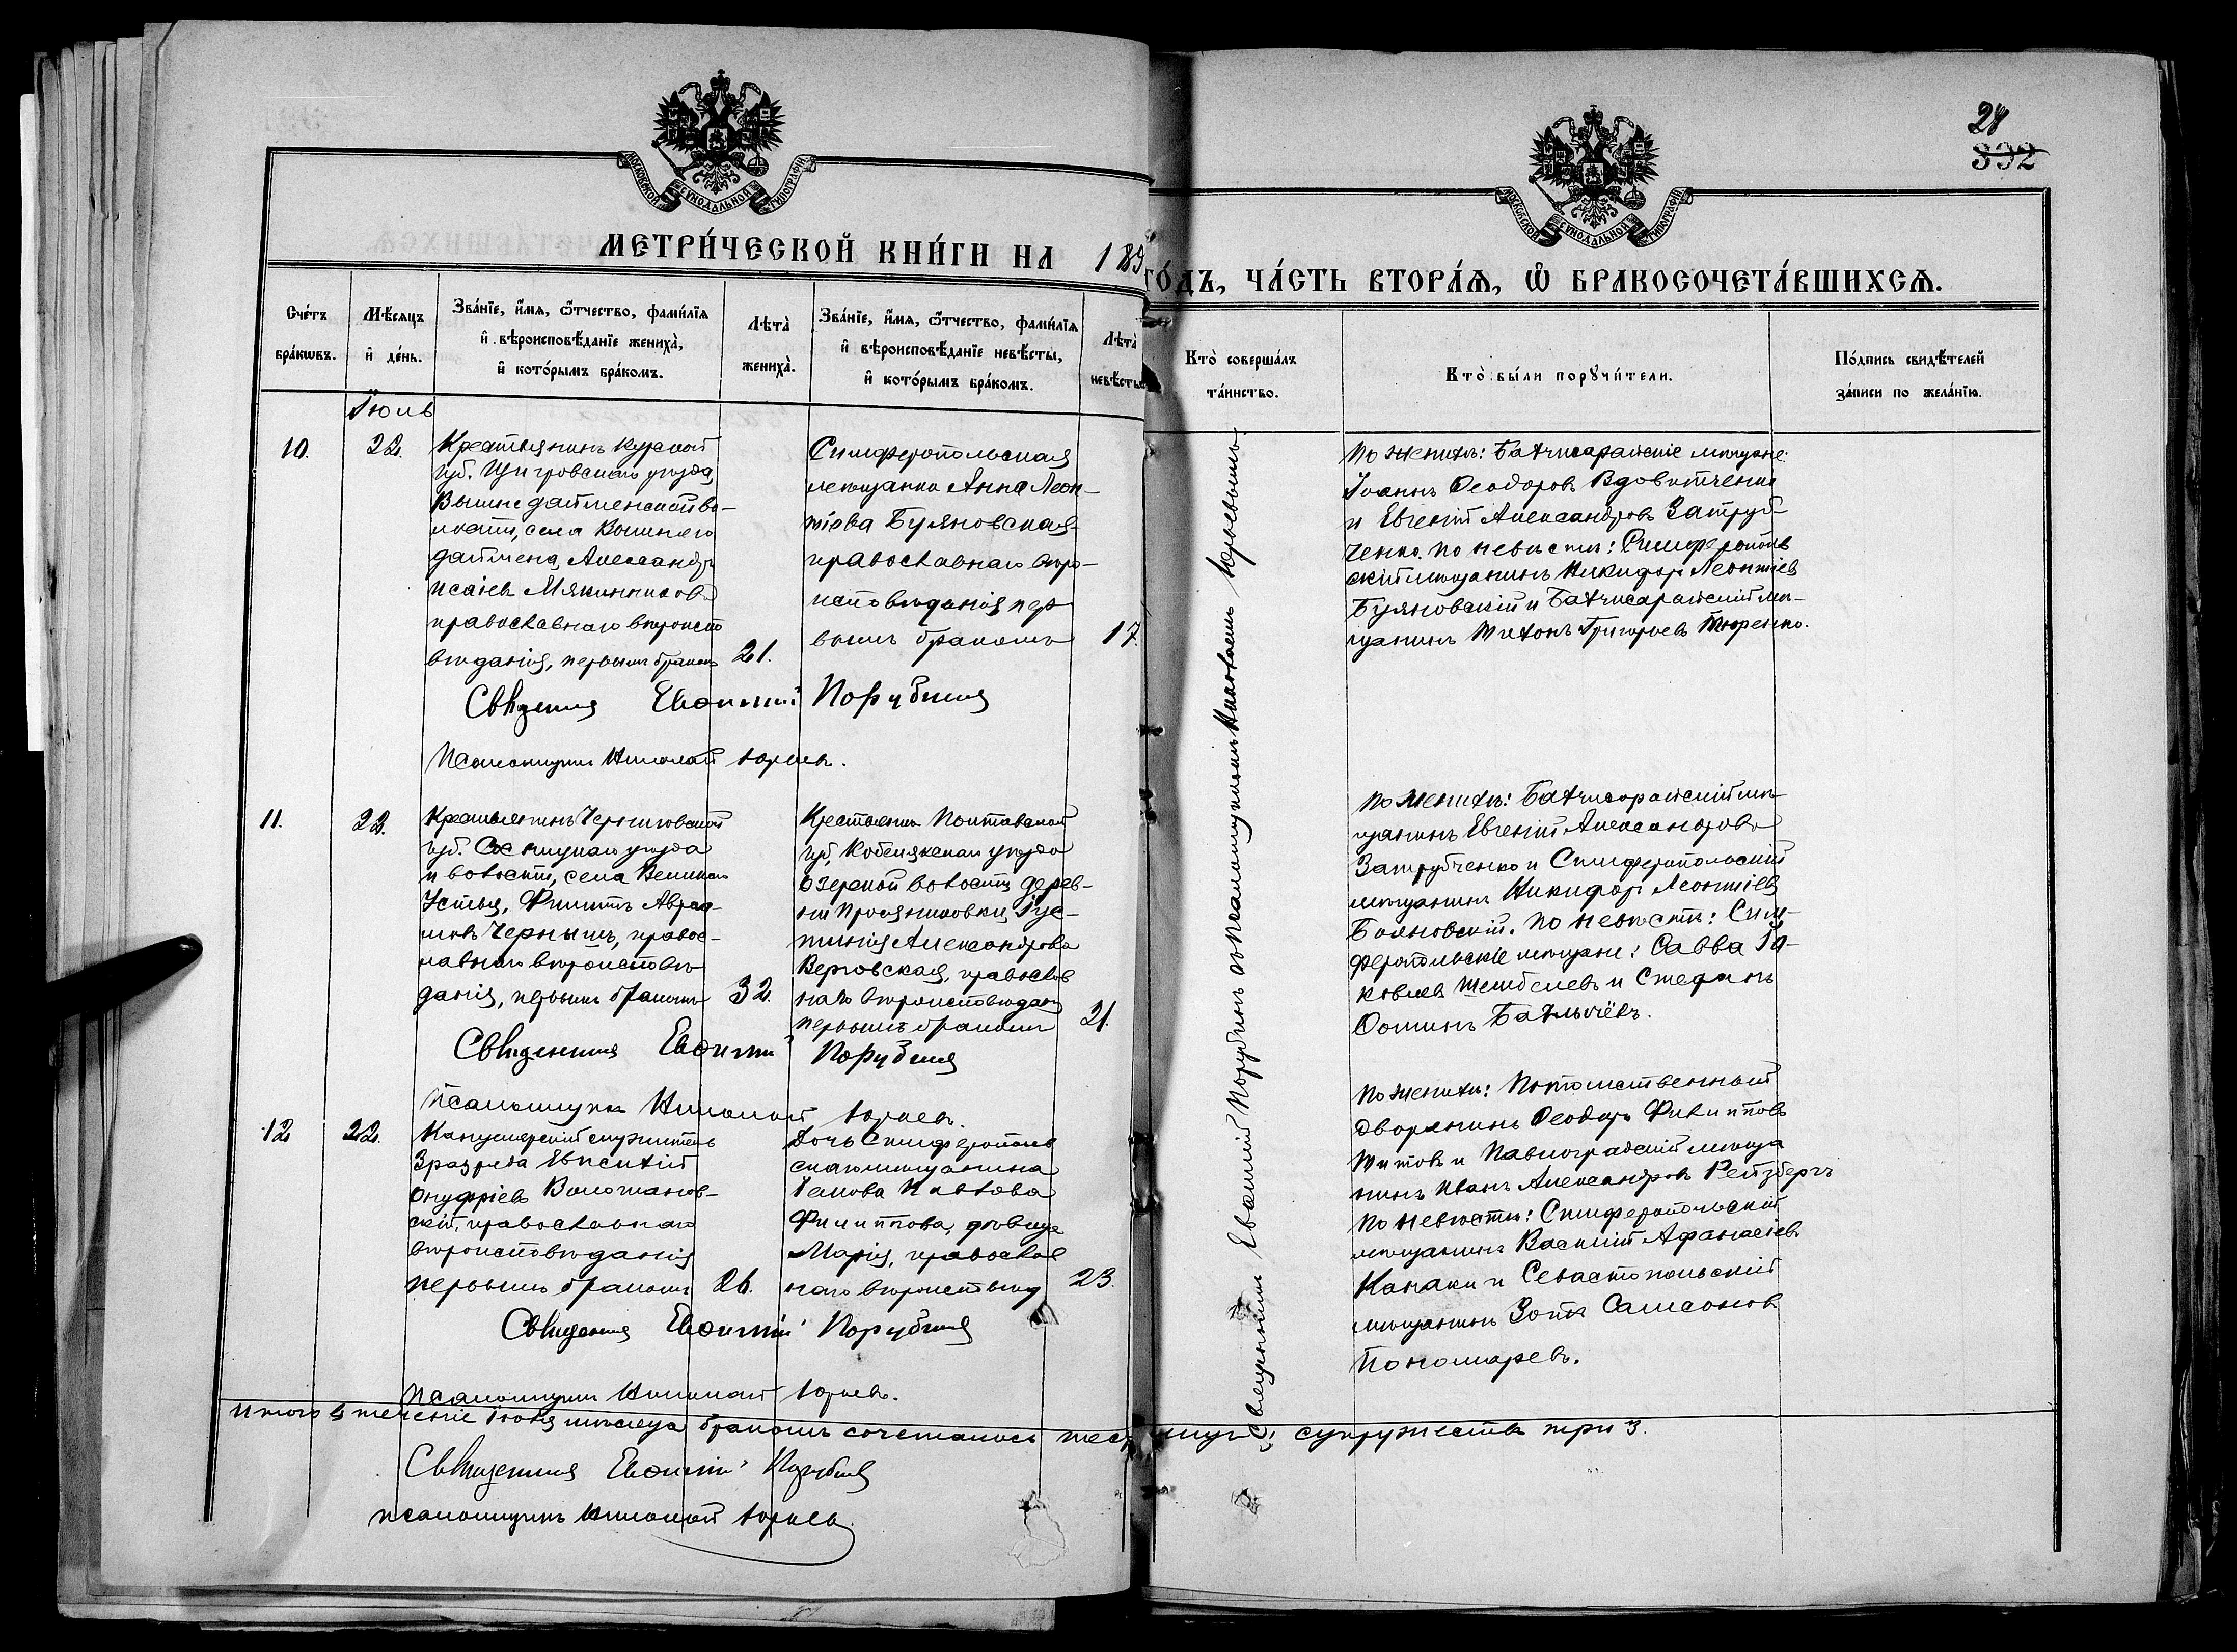 28
392
МОСКОВСКОЙ СУНОДАЛЬНОЙ ТИПОГРАФІИ
МОСКОВСКОЙ СУНОДАЛЬНОЙ ТИПОГРАФІИ
МЕТРИ́ЧЕСКОЙ КНИ́ГИ НА 189
ГО́ДЪ, ЧА́СТЬ ВТОРА́Ѧ, Ѡ҆ БРАКОСОЧЕТА́ВШИХСѦ.
Сче́тъ бра́кѡвъ.
Мѣ́сяцъ и҆ де́нь.
Зва́нїе, и҆́мя, ѻ҆́тчество, фами́лїя и҆ вѣроисповѣ́данїе жениха̀, и҆ кото́рымъ бра́комъ.
Лѣта̀ жениха̀.
Зва́нїе, и҆́мя, ѻ҆́тчество, фами́лїя и҆ вѣроисповѣ́данїе невѣ́сты, и҆ кото́рымъ бра́комъ.
Лѣта̀ невѣ́сты
Кто̀ соверша́лъ та́инство.
Кто̀ бы́ли порꙋчи́тели.
По́дпись свидѣ́телей за́писи по жела́нїю.
Іюль
10.
22.
Крестьянинъ Курской
губ. Щигровскаго уѣзда,
Вышнедайменской во-
лости, села Вышняго
Даймена, Александръ
Исаіевъ Мякинниковъ
православнаго вѣроиспо
вѣданія, первымъ бракомъ
21.
Симферопольская
мѣщанка Анна Леон-
тіева Буяновская
православнаго вѣро-
исповѣданія пер
вымъ бракомъ
17.
По женихѣ: Бахчисарайскіе мѣщане:
Іоаннъ Ѳеодоровъ Вдовитченко
и Евгеній Александровъ Затруб-
ченко. По невѣстѣ: Симферополь
скій мѣщанинъ Никифоръ Леонтіев
Буяновскій и Бахчисарайскій мѣ-
щанинъ Тихонъ Григорьевъ Тюренко.
Священникъ Евѳимій Порубинъ
Псаломщикъ Николай Юрьевъ.
11.
22.
Крестьянинъ Черниговской
губ. Сосницкаго уѣзда
и волости, села Великаго
Устья, Филиппъ Авраа-
мовъ Чернышъ, правос-
лавнаго вѣроисповѣ
данія, первымъ бракомъ
32.
Крестьянка Полтавской
губ. Кобелякскаго уѣзда
Озерской волости дерев-
ни Просяниковки, Іус-
тинія Александрова
Верговская, православ
наго вѣроисповѣдан
первымъ бракомъ
21.
По женихѣ: Бахчисарайскій мѣ-
щанинъ Евгеній Александровъ
Затрубченко и Симферопольскій
мѣщанинъ Никифоръ Леонтіевъ
Бояновскій. По невѣстѣ: Сим-
феропольскіе мѣщане: Савва Іа-
ковлевъ Шембелевъ и Стефанъ
Ѳоминъ Бахмачёвъ.
Священникъ Евѳимій Порубинъ
Псаломщикъ Николай Юрьевъ.
12
22.
Канцелярскій служитель
3 разряда Евпсихій
Онуфріевъ Воложанов-
скій, православнаго
вѣроисповѣданія
первымъ бракомъ
26.
Дочь Симферополь
скаго мѣщанина
Іакова Павлова
Филиппова, дѣвица
Марія, православ
наго вѣроисповѣд
23.
По женихѣ: Потомственный
дворянинъ Ѳеодоръ Филипповъ
Титовъ и Павлоградскій мѣща
нинъ Иванъ Александровъ Рейзбергъ
По невѣстѣ: Симферопольскій
мѣщанинъ Василій Аѳанасіевъ
Канаки и Севастопольскій
мѣщанинъ Зотъ Самсонов
Пономаревъ.
Священникъ Евѳимій Порубинъ
Псаломщикъ Николай Юрьевъ.
Священникомъ Евѳиміемъ Порубинымъ съ псаломщикомъ Николаемъ Юрьевымъ
Итого въ теченіе Іюля мѣсяца бракомъ сочеталось супружествъ три 3.
Священникъ Евѳимій Порубинъ
псаломщикъ Николай Юрьевъ.